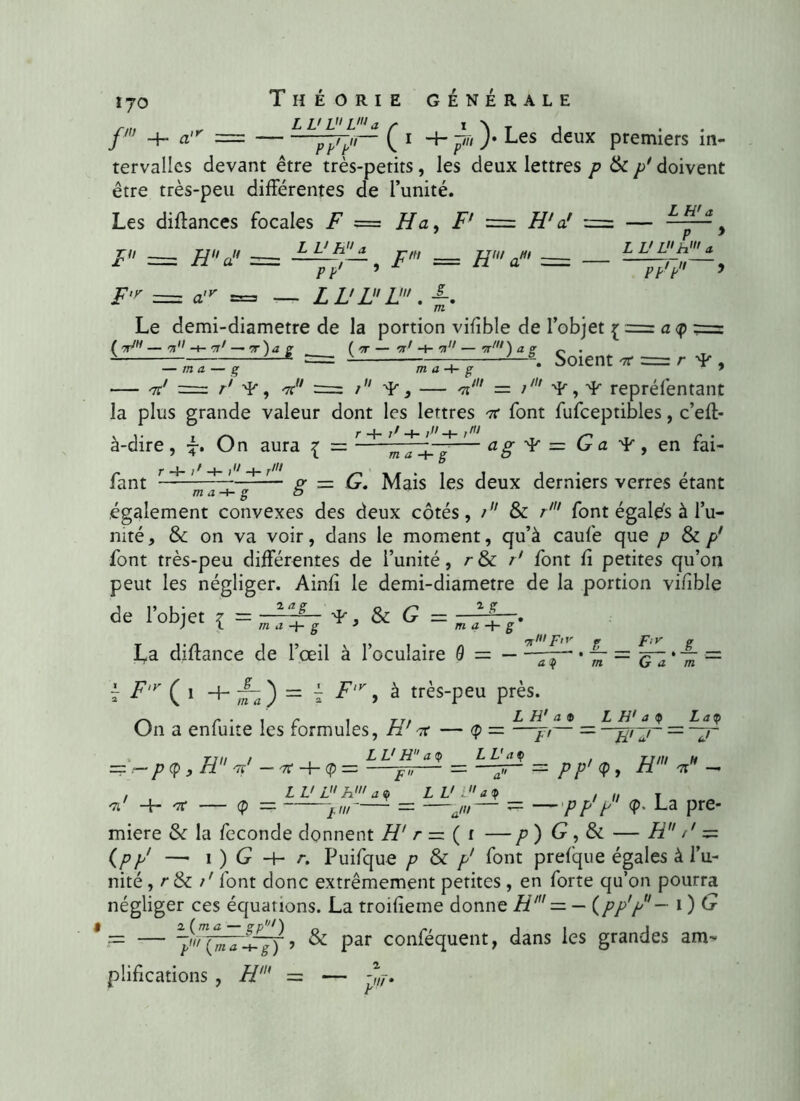 170 THÉORIE GÉNÉRALE
f''' + a'ᵛ = — (L L' L'' L''' a / p p' p'') (1 + 1/p'''). Les deux premiers in-
tervalles devant être très-petits, les deux lettres p & p' doivent
être très-peu différentes de l'unité.
Les diſtances focales F = Ha, F' = H'a' = — L H' a / p,
F'' = H''a'' = L L' H'' a / p p', F''' = H''' a''' = — L L' L'' h''' a / p p' p'',
F'ᵛ = a'ᵛ = — L L' L'' L''' . g/m.
Le demi-diametre de la portion viſible de l'objet ζ = a φ =
(π''' — π'' + π' — π) a g / — m a — g = (π — π' + π'' — π''') a g / m a + g. Soient π = r Ψ,
— π' = r' Ψ, π'' = r'' Ψ, — π''' = r''' Ψ, Ψ repréſentant
la plus grande valeur dont les lettres π ſont ſuſceptibles, c'eſt-
à-dire, 1/4. On aura ζ = (r + r' + r'' + r''' / m a + g) a g Ψ = G a Ψ, en fai-
ſant (r + r' + r'' + r''' / m a + g) g = G. Mais les deux derniers verres étant
également convexes des deux côtés, r'' & r''' ſont égalés à l'u-
nité, & on va voir, dans le moment, qu'à cauſe que p & p'
ſont très-peu différentes de l'unité, r & r' ſont ſi petites qu'on
peut les négliger. Ainſi le demi-diametre de la portion viſible
de l'objet ζ = (2 a g / m a + g) Ψ, & G = 2 g / m a + g.
La diſtance de l'œil à l'oculaire θ = — (π''' F'ᵛ / a φ) . g/m = (F'ᵛ / G a) . g/m =
1/2 F'ᵛ (1 + g / m a) = 1/2 F'ᵛ, à très-peu près.
On a enſuite les formules, H' π — φ = L H' a φ / F' = L H' a φ / H' a' = L a φ / a'
= — p φ, H'' π' — π + φ = L L' H'' a φ / F'' = L L' a φ / a'' = p p' φ, H''' π'' —
π' + π — φ = L L' L'' h''' a φ / F''' = L L' L'' a φ / a''' = — p p' p'' φ. La pre-
miere & la ſeconde donnent H' r = (1 — p) G, & — H'' r' =
(p p' — 1) G + r. Puiſque p & p' ſont preſque égales à l'u-
nité, r & r' ſont donc extrêmement petites, en ſorte qu'on pourra
négliger ces équations. La troiſieme donne H''' = — (p p' p'' — 1) G
= — 2 (m a — g p''') / p''' (m a + g), & par conſéquent, dans les grandes am-
plifications, H''' = — 2 / p'''.